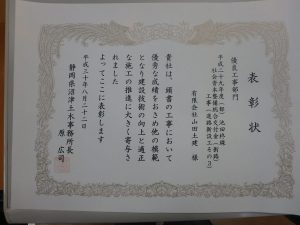 表彰状
優良工事部門
平成二十九年度(一部)池田柊線
社会資本整備総合交付金(新路)
工事(道路新設工その3)
有限会社山田土建 様
貴社は、頭書の工事において
優秀な成績をおさめ他の模範
となり建設技術の向上と適正
な施工の推進に大きく寄与さ
れました
よってここに表彰します
平成三十年八月二十二日
静岡県沼津土木事務所長
原 広司